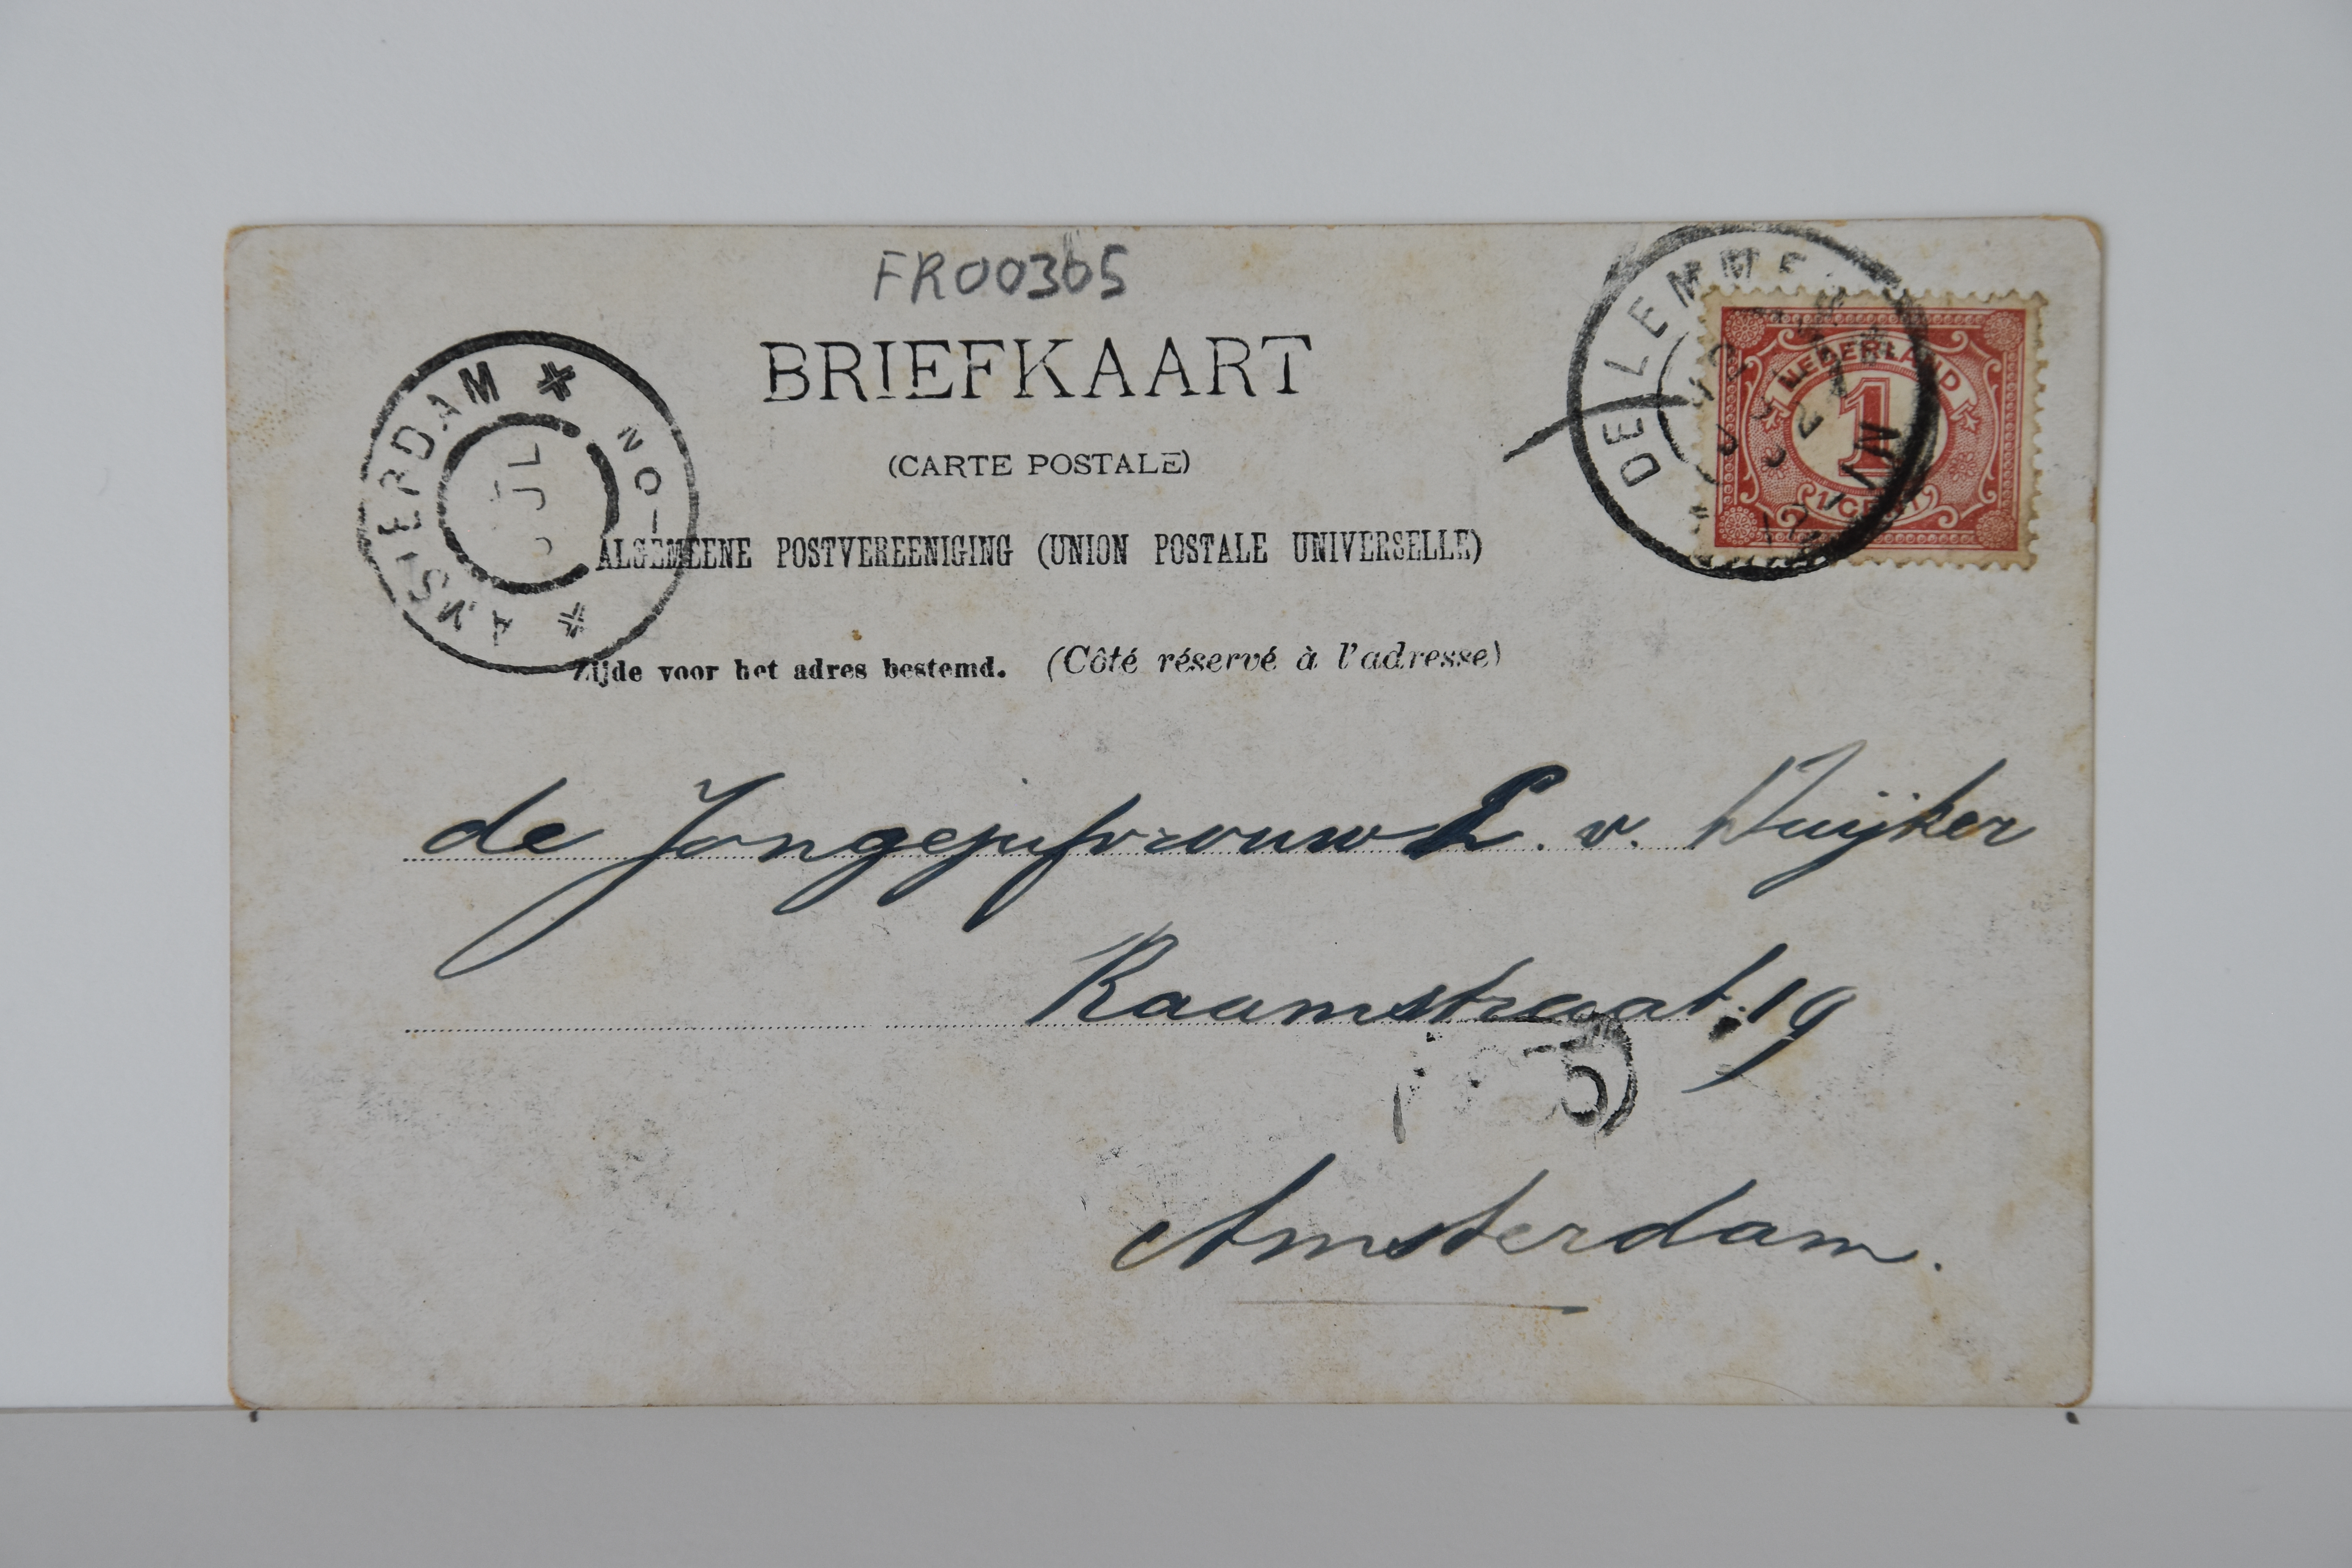 FR00365
BRIEFKAART
(CARTE POSTALE)
ALGEMEENE POSTVEREENIGING (UNION POSTALE UNIVERSELLE)
Zijde voor het adres bestemd. (Côté réservé à l'adresse)
AMSTERDAM
NO
JL
DE LEMMER
NEDERLAND
1
1 CENT
de Jongejufvrouw L. v.
Raamstraat 19
Amsterdam.